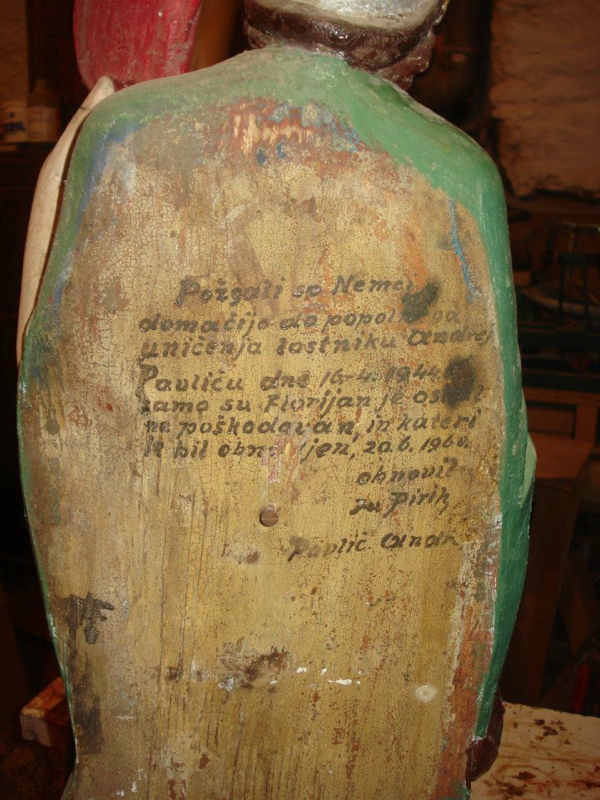 Požgali so Nemci
domačijo do popol ga
uničenja lastniku Andrej
Pavliču dne 16-4-1944
samo su Florijan je os
ne poškodovan, in kateri
je bil obno ljen, 20.6. 196
obnovil
Ju Pirih
Pavlič Andr